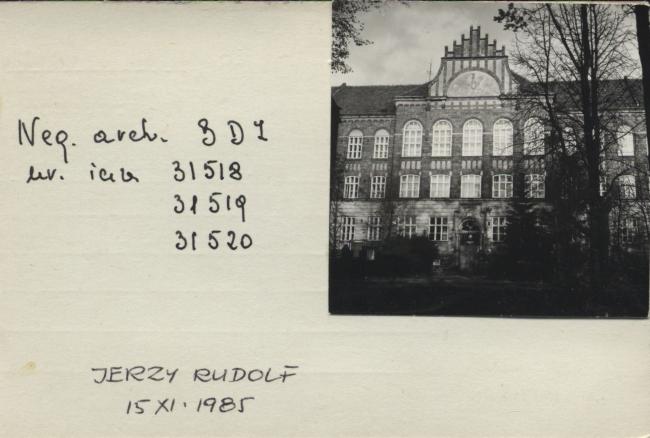 Neg. arch. BDZ
nr. inw 31518
31519
31520
JERZY RUDOLF
15 XI. 1985